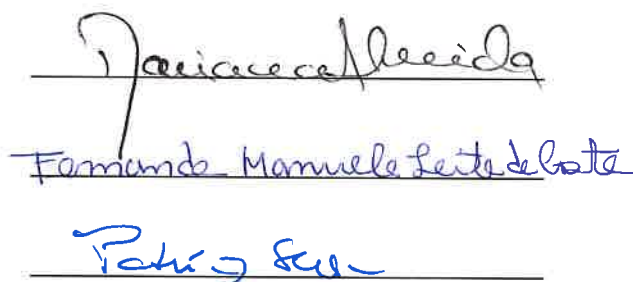 Mariana Almeida
Fernanda Manuela Leite da Costa
Patrí Silva